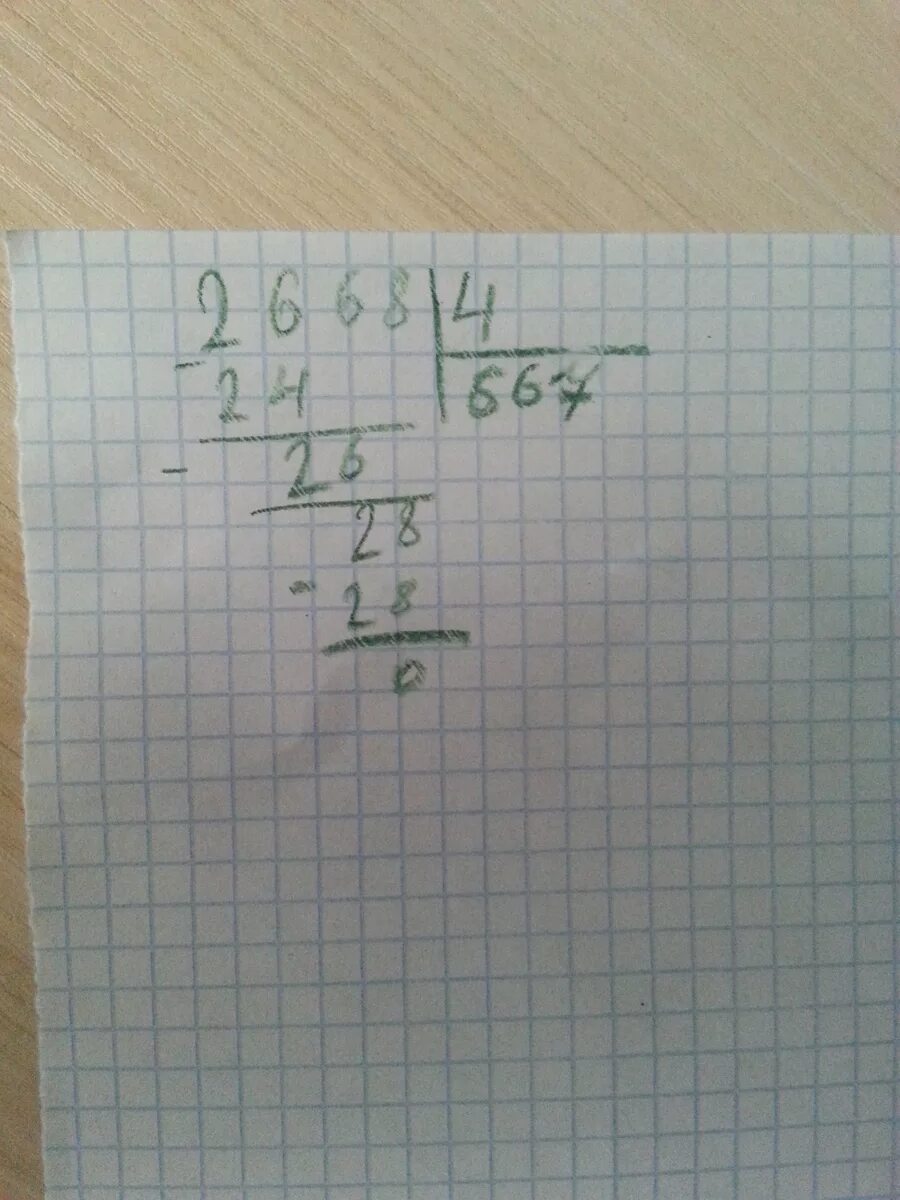 2668 4
- 24 667
- 26
28
- 28
0